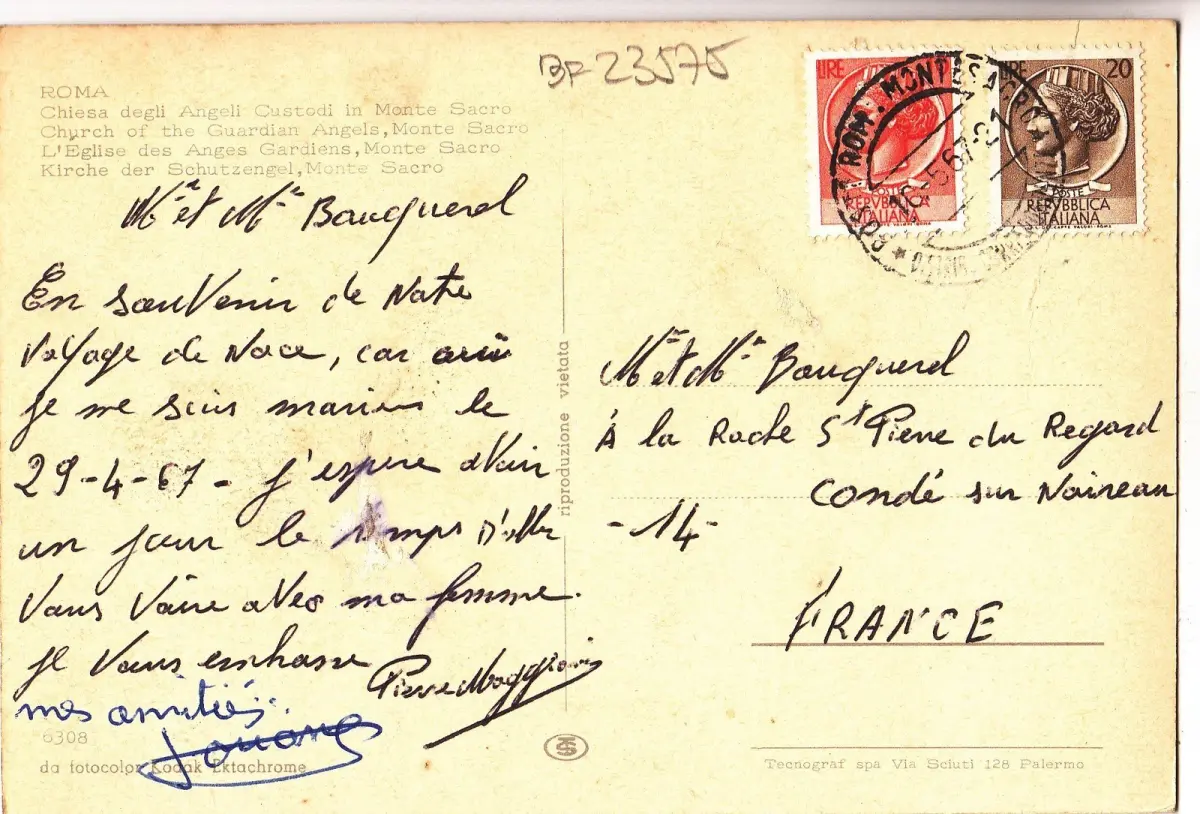 BF 23575
ROMA
Chiesa degli Angeli Custodi in Monte Sacro
Church of the Guardian Angels, Monte Sacro
L'Église des Anges Gardiens, Monte Sacro
Kirche der Schutzengel, Monte Sacro
Mr et Me Bauquerel
En souvenir de Notre
Voyage de Noce, car
je me suis marier le
29-4-67- j'espere avoir
un jour le temps D'aller
Vous Voire avec ma femme.
je Vous embrasse
Pierre Maggioni
mes amitiés
6308
da fotocolor Kodak Ektachrome
riproduzione vietata
LIRE
POSTE
REPVBBLICA
ITALIANA
LIRE 20
POSTE
REPVBBLICA
ITALIANA
ROMA MONTESACRO
16-5 67-21
Mr et Me Bauquerel
À la Roche St Pierre du Regard
Condé sur Noireau
- 14 -
FRANCE
Tecnograf spa Via Sciuti 128 Palermo